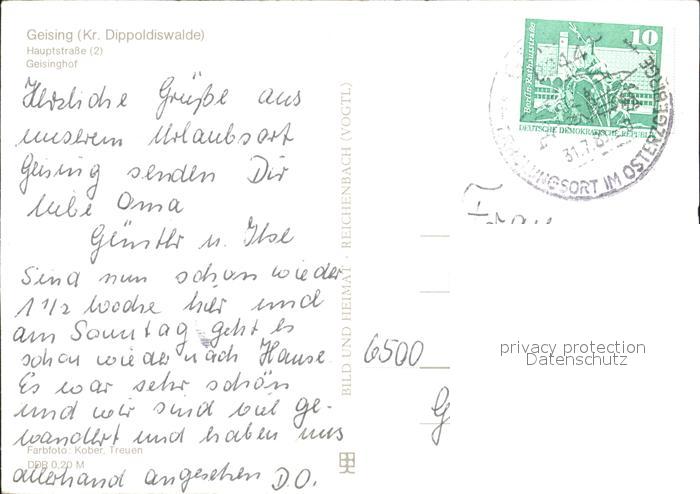 Geising (Kr. Dippoldiswalde)
Hauptstraße (2)
Geisinghof
Herzliche Grüße aus
unserem Urlaubsort
Geising senden Dir
liebe Oma
Günther u. Ilse
Sind nun schon wieder
1 1/2 Woche hier und
am Sonntag geht es
schon wieder nach Hause
Es war sehr schön
und wir sind viel ge-
wandert und haben uns
allerhand angesehen D.O.
Farbfoto: Kober, Treuen
DDR 0,20 M
BILD UND HEIMAT · REICHENBACH (VOGTL)
Berlin-Rathausstraße
10
DEUTSCHE DEMOKRATISCHE REPUBLIK
31.7.8
ORT IM OSTERZGEBIRGE
Frau
6500
G
privacy protection
Datenschutz